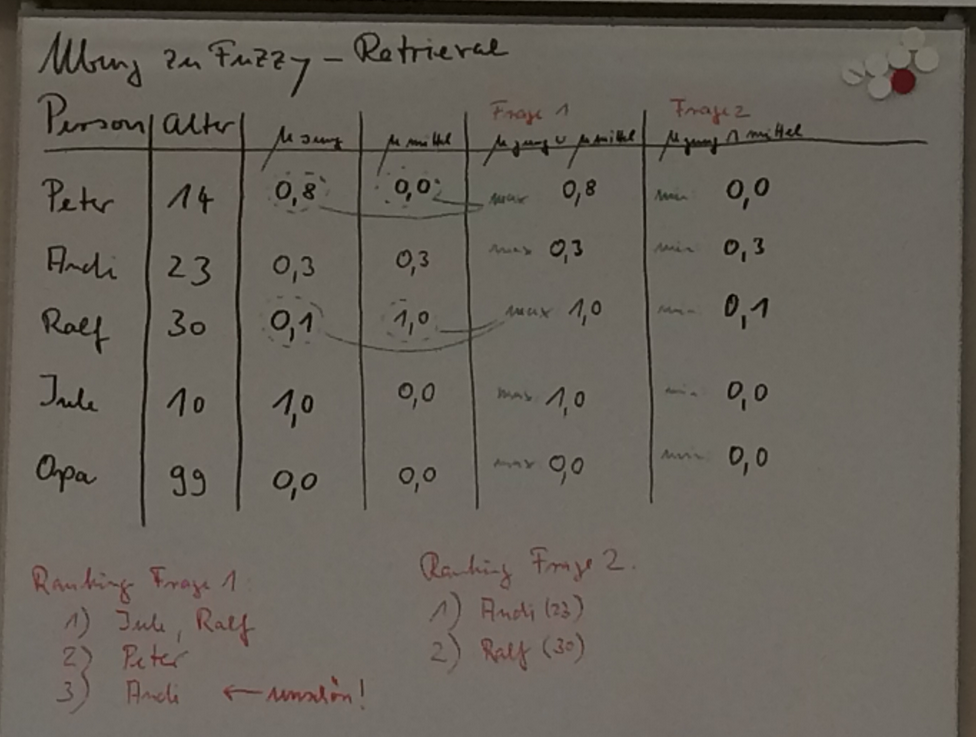 Übung zu Fuzzy-Retrieval
Frage 1 Frage 2
Person Alter μ jung μ mittel μ jung ∪ μ mittel μ jung ∩ mittel
Peter 14 0,8 0,0 max 0,8 min 0,0
Andi 23 0,3 0,3 max 0,3 min 0,3
Ralf 30 0,1 1,0 max 1,0 min 0,1
Jule 10 1,0 0,0 max 1,0 min 0,0
Opa 99 0,0 0,0 max 0,0 min 0,0
Ranking Frage 1
1) Jule, Ralf
2) Peter
3) Andi ← unschön!
Ranking Frage 2.
1) Andi (23)
2) Ralf (30)